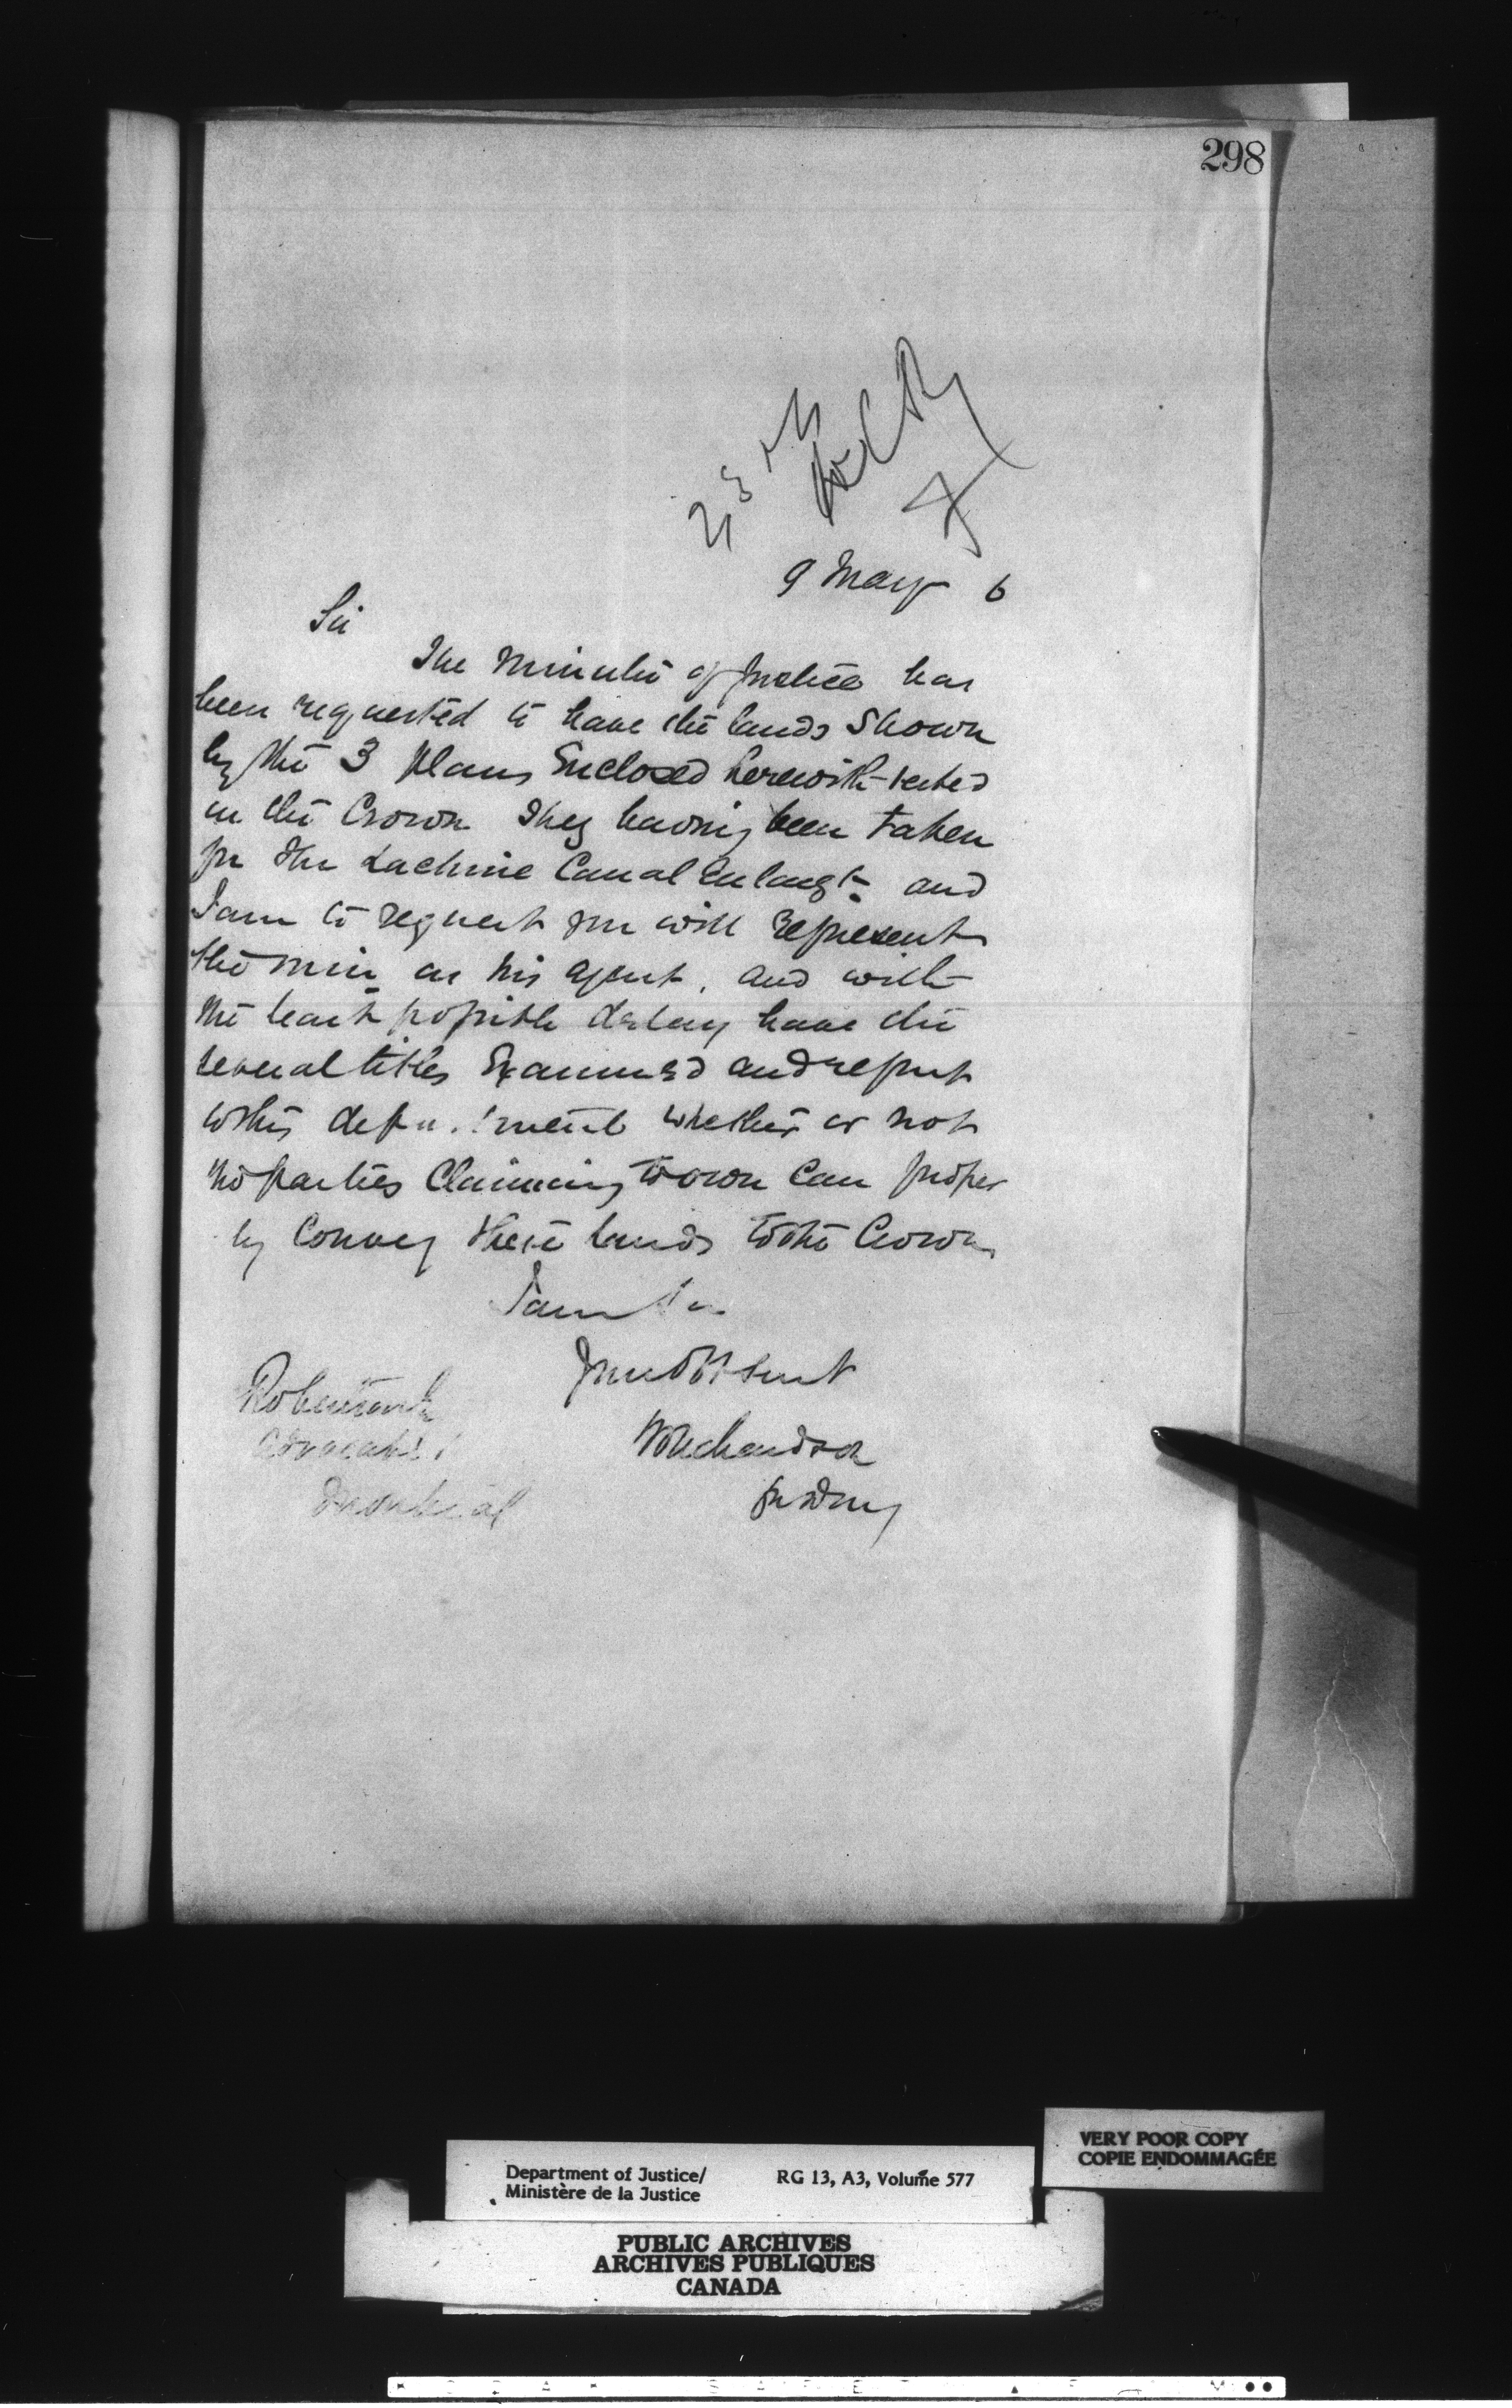 298
9 May 6
Sir
The Minister of Justice has
been requested to have the lands shown
by the 3 plans Enclosed herewith vested
in the Crown They having been taken
for the Lachine Canal Enlargt. and
I am to request you will represent
the Min as his agent, and with
the least possible delay have the
several titles Examined and report
to this department whether or not
the parties Claiming to own Can proper
ly Convey these lands to the Crown
I am Sir
Your Ob Servt
Richardson
Advocate
Montreal
VERY POOR COPY
COPIE ENDOMMAGÉE
Department of Justice/ RG 13, A3, Volume 577
Ministère de la Justice
PUBLIC ARCHIVES
ARCHIVES PUBLIQUES
CANADA